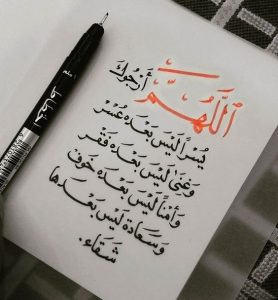 اللَّهُمَّ أرْجُوكَ
يُسْرًا لَيْسَ بَعْدَهُ عُسْر
وَغِنَىً لَيْسَ بَعْدَهُ فَقْر
وَأَمْنًا لَيْسَ بَعْدَهُ خَوْف
وَسَعَادَة لَيْسَ بَعْدَهَا
شَقَاء.
الخطاط